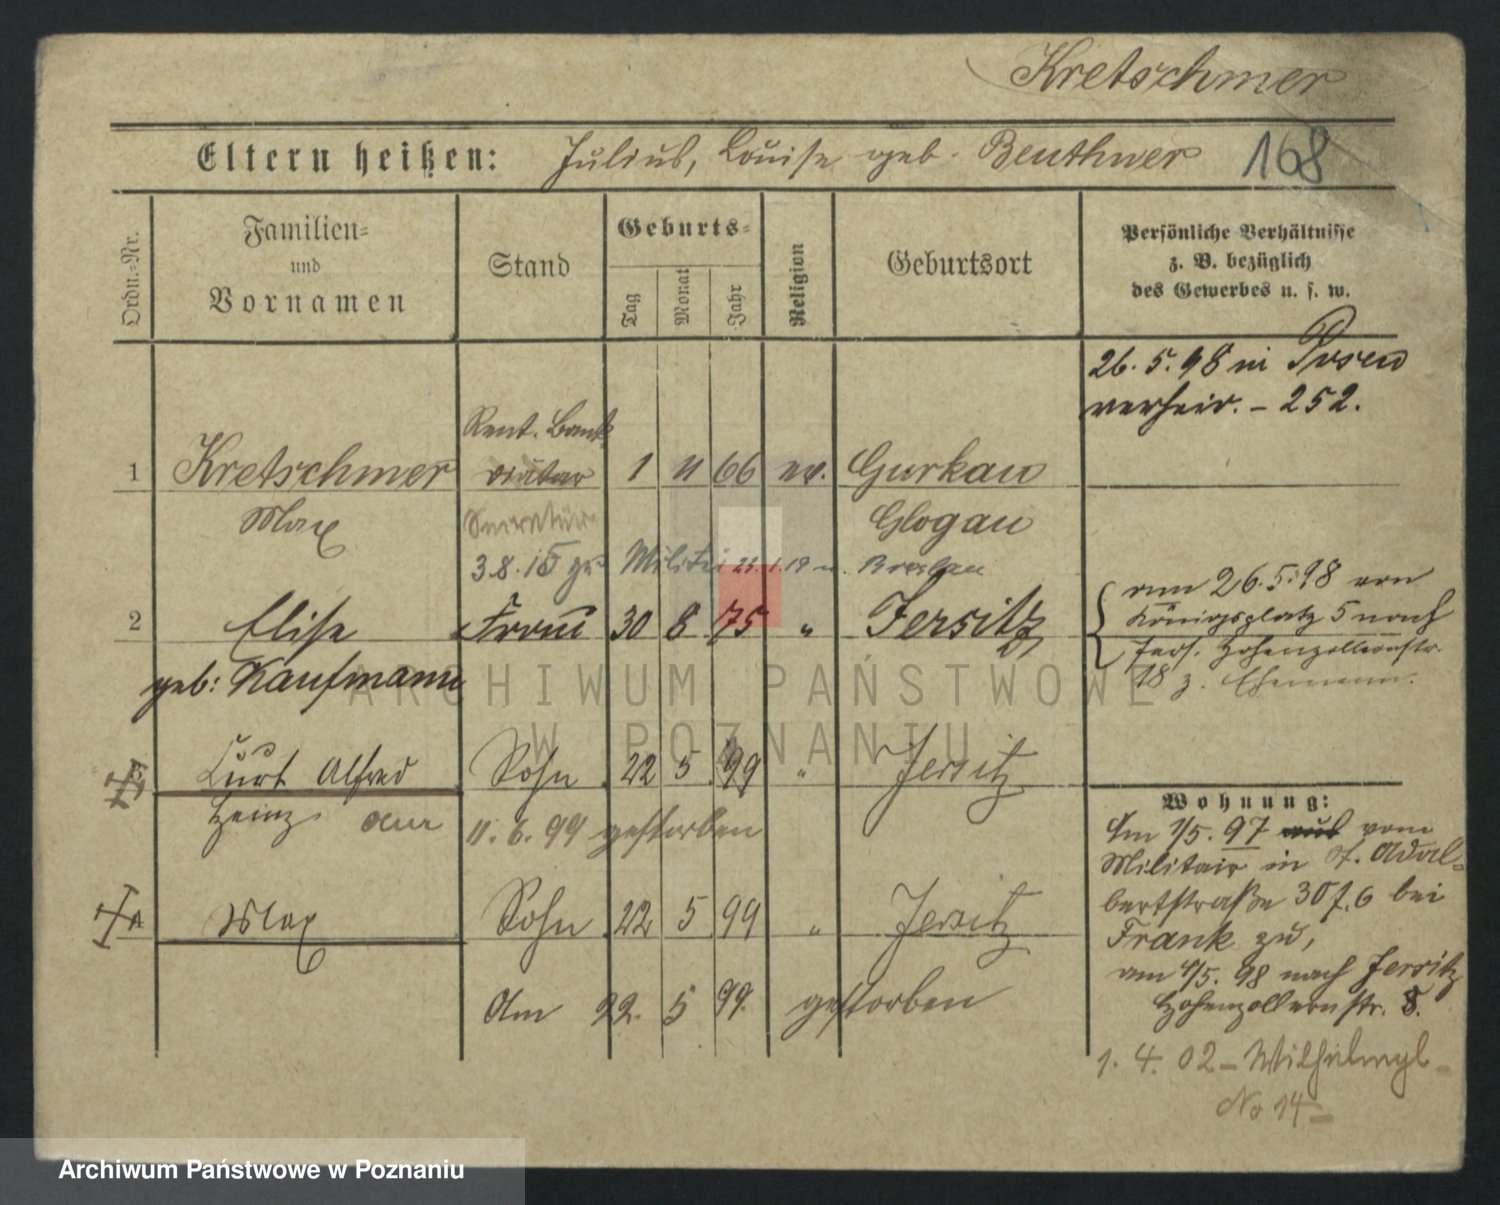 Kretschmer
Eltern heißen: Julius, Louise geb. Beuthner 168
Ordn.-Nr.
Familien-
und
Vornamen
Stand
Geburts-
Tag
Monat
Jahr
Religion
Geburtsort
Persönliche Verhältnisse
z. B. bezüglich
des Gewerbes u. s. w.
26. 5. 98 in Posen
verheir. – 252.
Rent. Bank
1 Kretschmer diätar 1 11 66 ev. Gurkau
Max Secretär Glogau
3.8.15 zu Militär 22.1.19 n. Breslau
2 Elise Frau 30 8 75 " Jersitz
geb: Kaufmann
am 26.5.98 von
Königsplatz 5 nach
Jers. Hohenzollernstr.
18 z. Ehemann.
3 Curt Alfred Sohn 22 5 99 " Jersitz
Heinz am 11. 6. 99 gestorben
4 Max Sohn 22 5 99 " Jersitz
Am 22. 5 99. gestorben
Wohnung:
Am 1/5. 97 aus vom
Militair in St. Adal-
bertstraße 30 f. 6 bei
Frank zu,
am 1/5. 98 nach Jersitz
Hohenzollernstr. 8.
1. 4. 02 – Wilhelmpl
No 14
ARCHIWUM PAŃSTWOWE
W POZNANIU
Archiwum Państwowe w Poznaniu